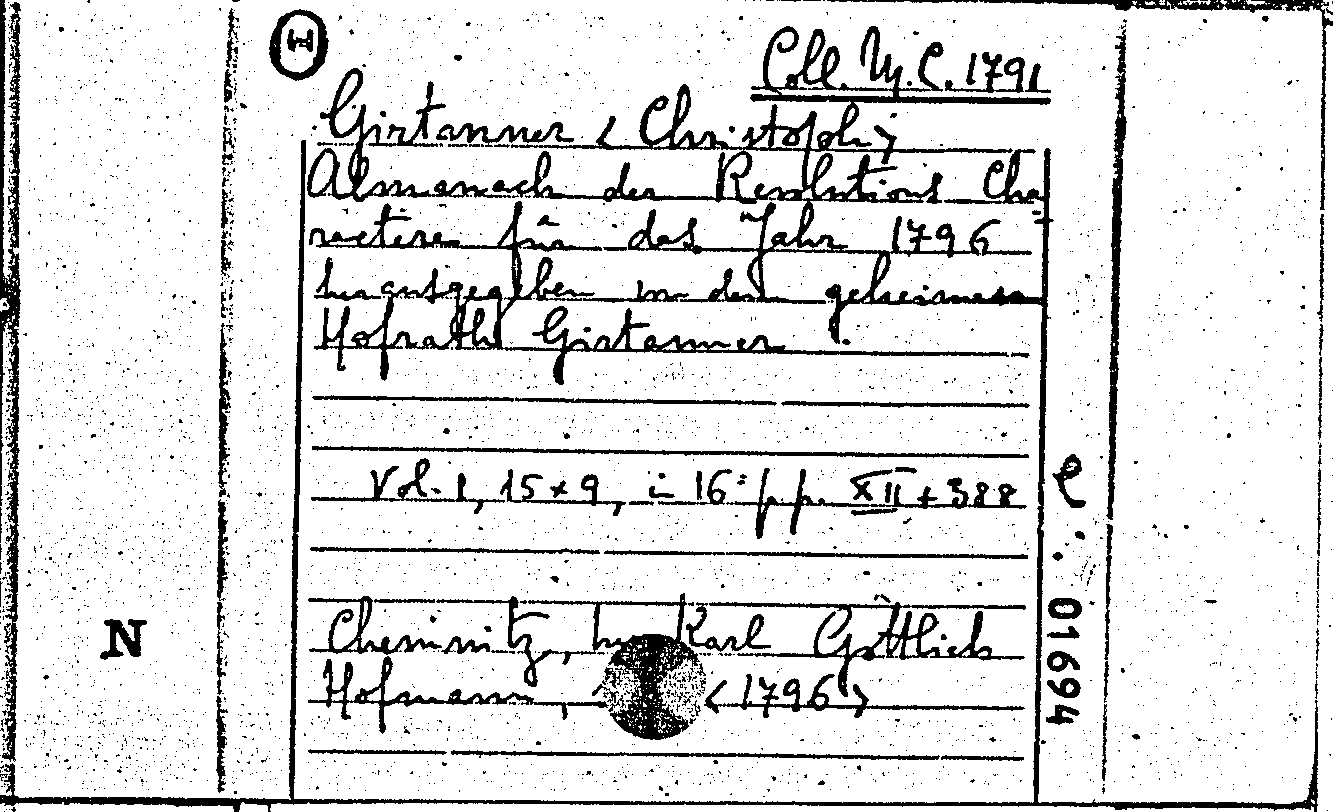 Coll. M.C. 1791
Girtanner < Christoph >
Almanach der Revolutions Cha=
ractere für das Jahr 1796
herausgegeben von dem geheimen
Hofrath Girtanner.
Vol. 1, 15 x 9, in 16° pp. XII + 388
Chemnitz, Karl Gottlieb
Hofmann, < 1796 >
N
01694